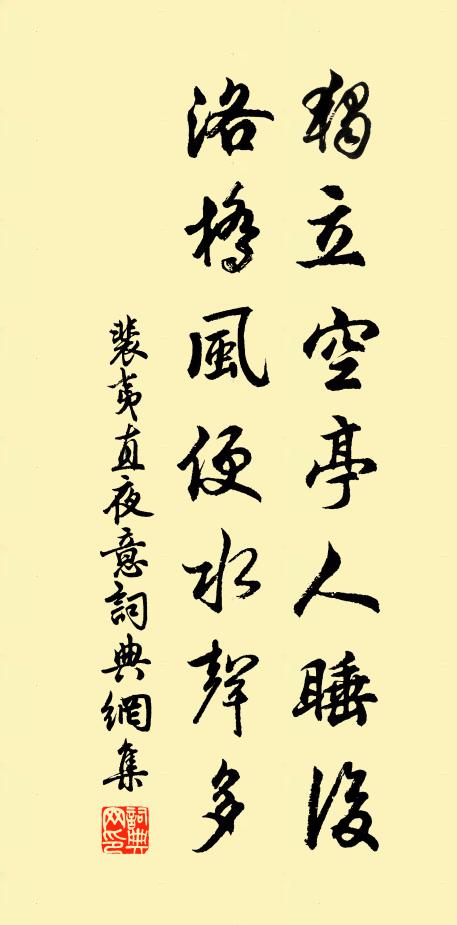 獨立空亭人睡後
洛橋風便水聲多
裴夷直夜意詞典網集
詞典
网印